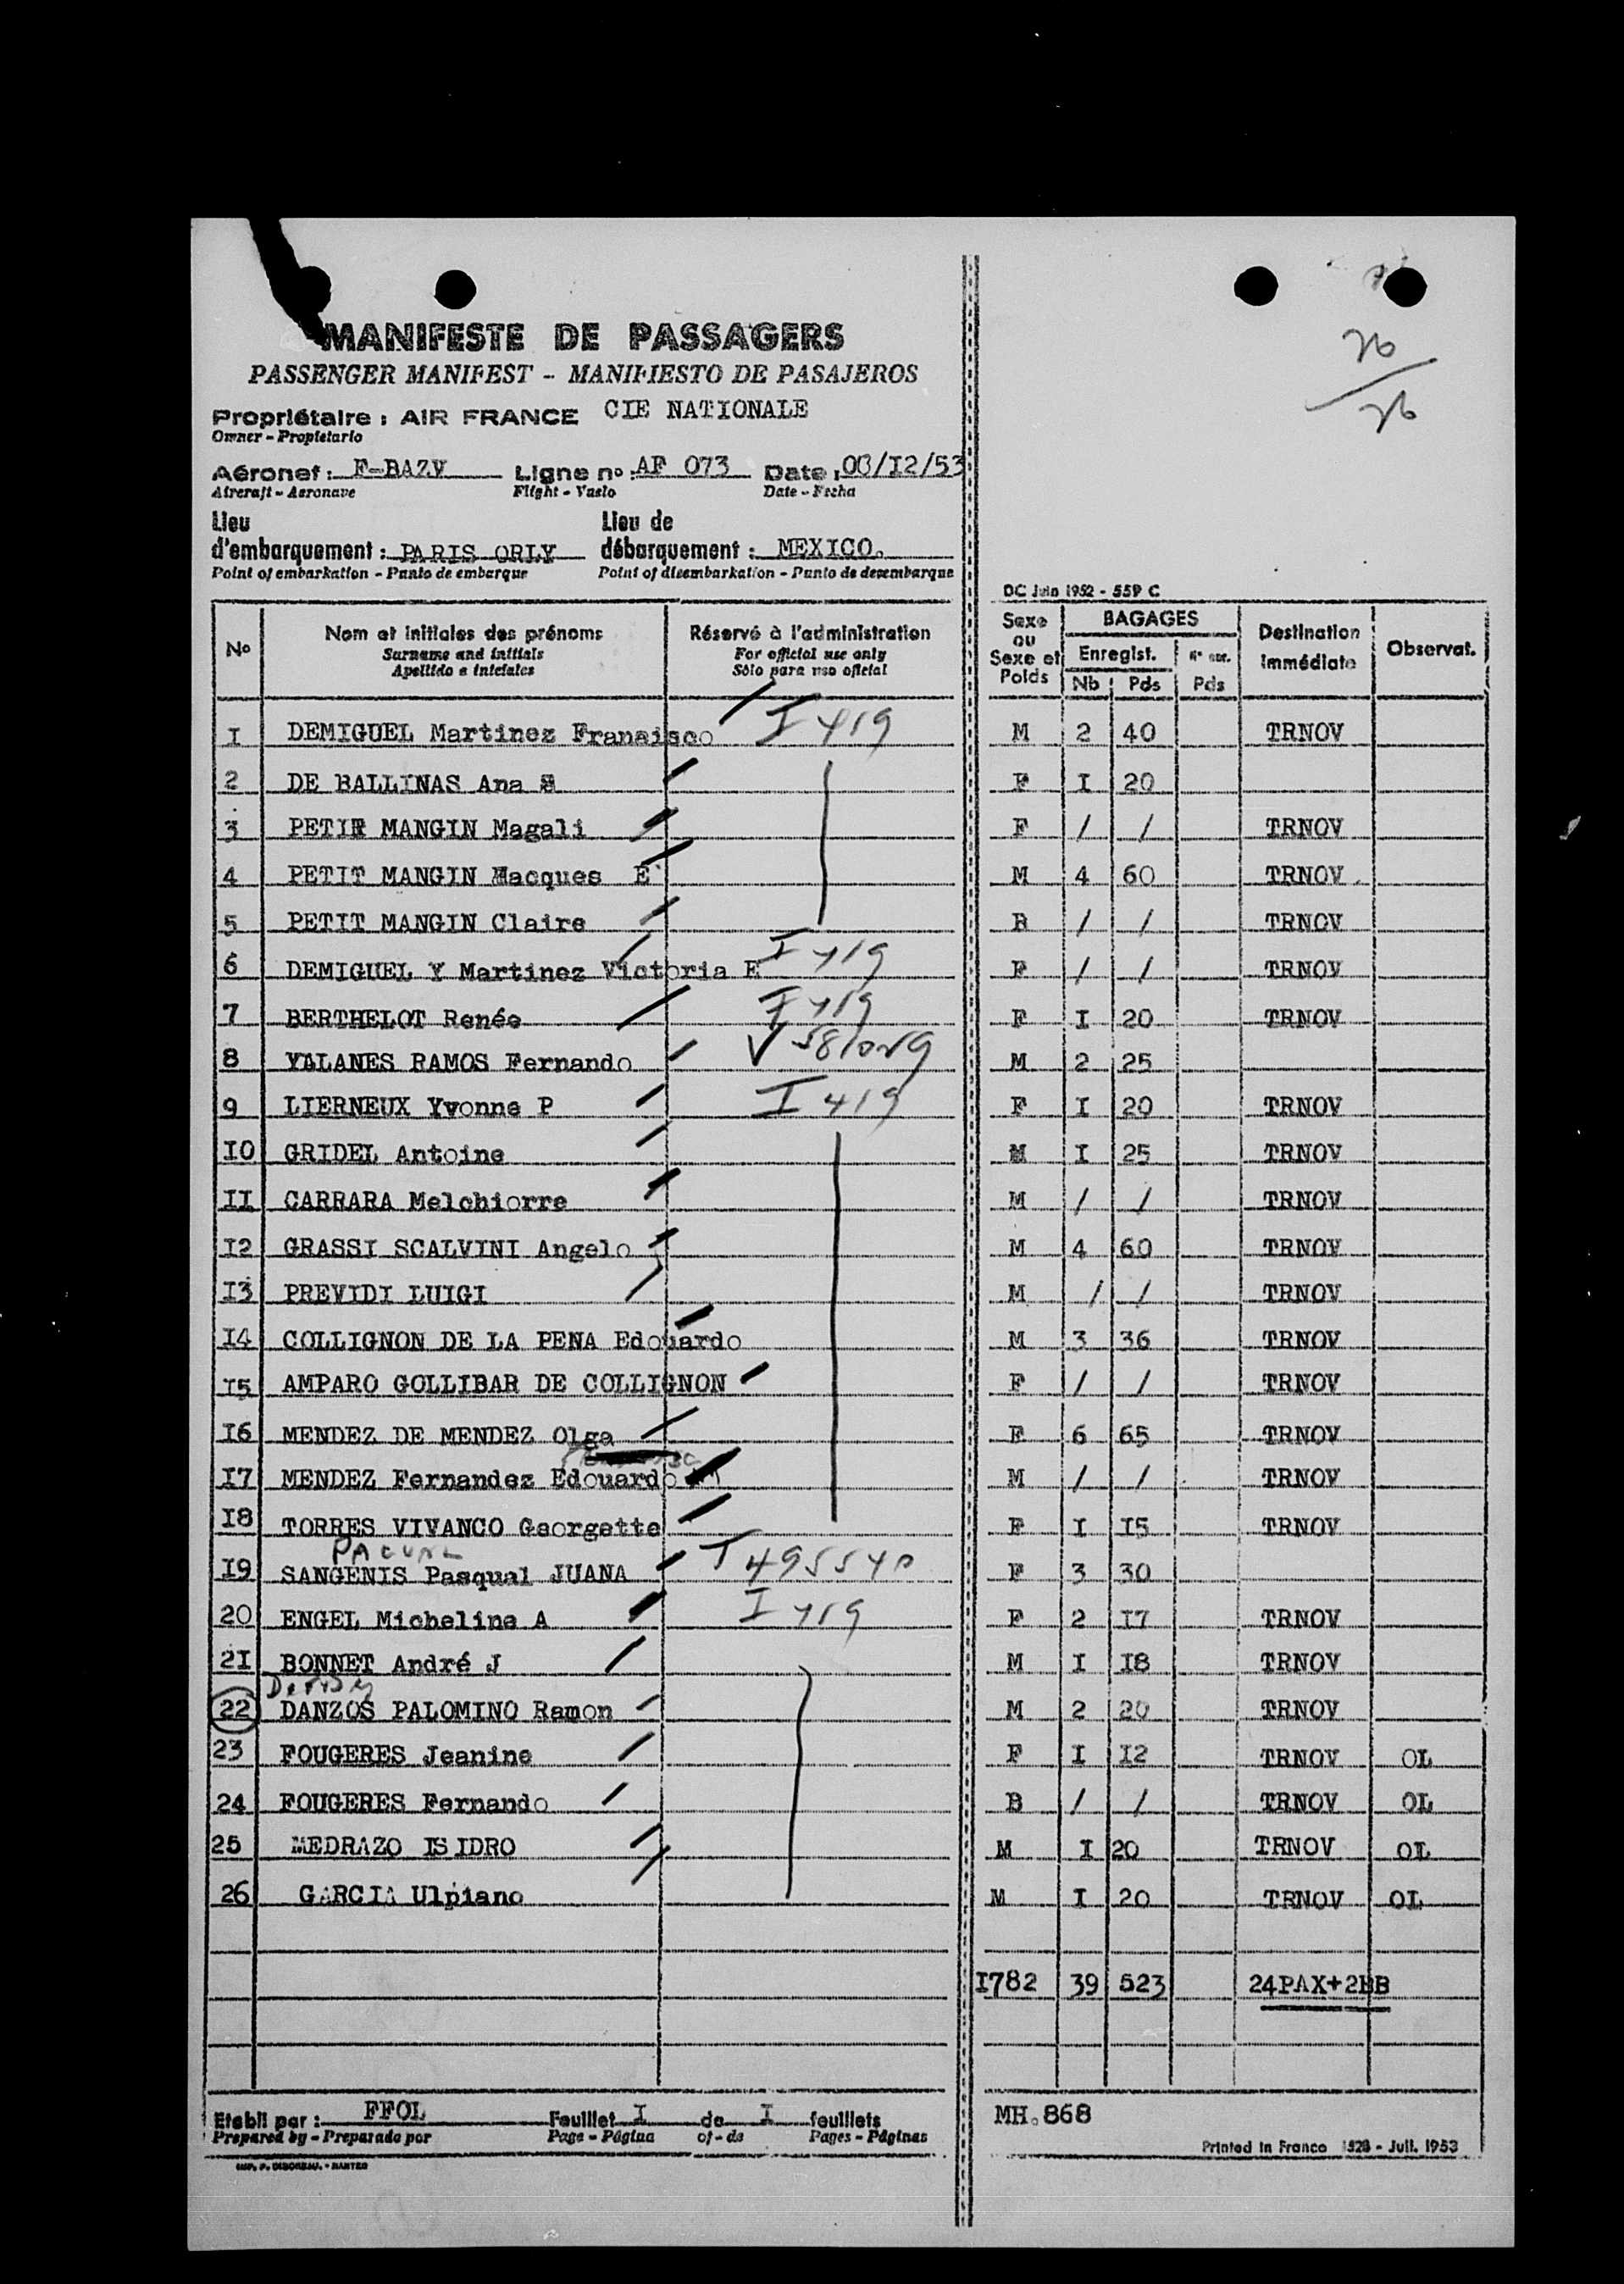 26
26
MANIFESTE DE PASSAGERS
PASSENGER MANIFEST - MANIFIESTO DE PASAJEROS
Propriétaire : AIR FRANCE CIE NATIONALE
Owner - Propietario
Aéronef : F-BAZV Ligne no : AF 073 Date : 08/I2/53
Aircraft - Aeronave Flight - Vuelo Date - Fecha
Lieu d'embarquement : PARIS ORLY Lieu de débarquement : MEXICO.
Point of embarkation - Punto de embarque Point of disembarkation - Punto de desembarque
DC Juin 1952 - 559 C
No Nom et initiales des prénoms Réservé à l'administration Sexe ou Sexe et Poids BAGAGES Destination immédiate Observat.
Surname and initials For official use only Enregist.
Apellido e iniciales Sólo para uso oficial Nb Pds Pds
I DEMIGUEL Martinez Franaisco I 419 M 2 40 TRNOV
2 DE BALLINAS Ana F I 20
3 PETIT MANGIN Magali F / / TRNOV
4 PETIT MANGIN Macques E M 4 60 TRNOV
5 PETIT MANGIN Claire B / / TRNOV
6 DEMIGUEL Y Martinez Victoria E I 419 F / / TRNOV
7 BERTHELOT Renée I 419 F I 20 TRNOV
8 YALANES RAMOS Fernando M 2 25
9 LIERNEUX Yvonne P I 419 F I 20 TRNOV
I0 GRIDEL Antoine M I 25 TRNOV
II CARRARA Melchiorre M / / TRNOV
I2 GRASSI SCALVINI Angelo M 4 60 TRNOV
I3 PREVIDI LUIGI M / / TRNOV
I4 COLLIGNON DE LA PENA Edouardo M 3 36 TRNOV
I5 AMPARO GOLLIBAR DE COLLIGNON F / / TRNOV
I6 MENDEZ DE MENDEZ Olga F 6 65 TRNOV
I7 MENDEZ Fernandez Edouardo M / / TRNOV
I8 TORRES VIVANCO Georgette F I I5 TRNOV
I9 SANGENIS Pasqual JUANA T 495540 F 3 30
20 ENGEL Micheline A I 419 F 2 I7 TRNOV
2I BONNET André J M I I8 TRNOV
22 DANZOS PALOMINO Ramon M 2 20 TRNOV
23 FOUGERES Jeanine F I I2 TRNOV OL
24 FOUGERES Fernando B / / TRNOV OL
25 MEDRAZO ISIDRO M I 20 TRNOV OL
26 GARCIA Ulpiano M I 20 TRNOV OL
I782 39 523 24PAX+2BB
Etabli par : FFOL Feuillet I de I feuillets MH.868
Prepared by - Preparado por Page - Página of - de Pages - Páginas
Printed in France 1528 - Juil. 1953